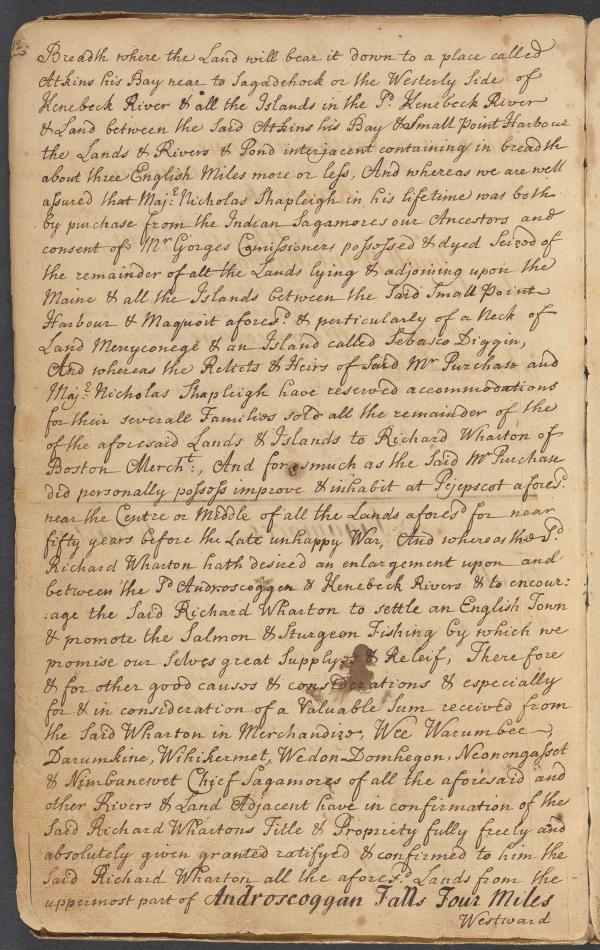 2
Breadth where the Land will bear it down to a place called
Atkins his Bay near to Sagadehock or the Westerly Side of
Kenebeck River & all the Islands in the Sd. Kenebeck River
& Land between the Said Atkins his Bay & Small Point Harbour
the Lands & Rivers & Pond interjacent containing in breadth
about three English Miles more or less, And whereas we are well
assured that Maj:r Nicholas Shapleigh in his lifetime was both
by purchase from the Indian Sagamores our Ancestors and
consent of Mr Gorges Comissioners possossed & dyed Seized of
the remainder of all the Lands lying & adjoining upon the
Maine & all the Islands between the Said Small Point
Harbour & Maquoit aforesd. & particularly of a Neck of
Land Merryconege & an Island called Sebasco Diggin,
And whereas the Relicts & Heirs of Said Mr Purchase and
Maj:r Nicholas Shapleigh have reserved accommodations
for their severall Families sold all the remainder of the
of the aforesaid Lands & Islands to Richard Wharton of
Boston Mercht:, And forasmuch as the Said Mr Purchase
did personally possess improve & inhabit at Pejepscot aforesd:
near the Centre or Middle of all the Lands aforesd for near
fifty years before the Late unhappy War, And whereas the Sd.
Richard Wharton hath desired an enlargement upon and
between the Sd Androscoggen & Kenebeck Rivers & to encour:
:age the Said Richard Wharton to settle an English Town
& promote the Salmon & Sturgeon Fishing by which we
promise our Selves great Supplyes & Releif, Therefore
& for other good causes & considerations & especially
for & in consideration of a Valuable Sum received from
the Said Wharton in Merchandize, Wee Warumbee,
Darumkine, Wihikermet, Wedon-Domhegon, Neonongasset
& Nimbanewet Chief Sagamores of all the aforesaid and
other Rivers & Land Adjacent have in confirmation of the
Said Richard Whartons Title & Propriety fully freely and
absolutely given granted ratifyed & confirmed to him the
Said Richard Wharton all the aforesd. Lands from the
uppermost part of Androscoggan Falls Four Miles
Westward